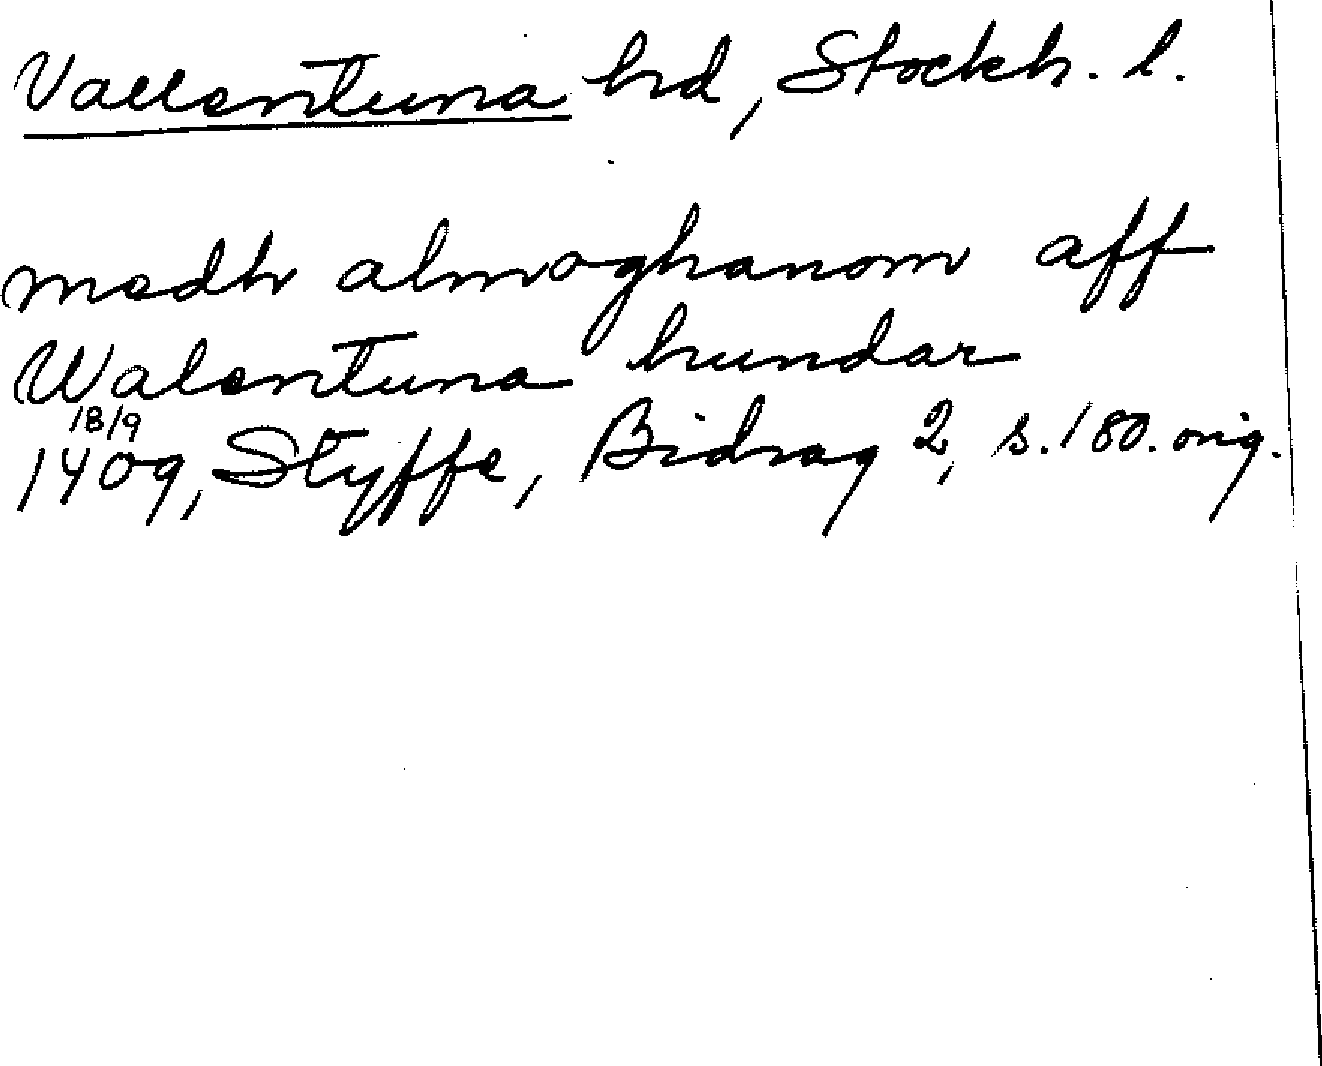 Vallentuna hd, Stockh. l.
medh almoghanom aff
Walentuna hundar
18/9
1409, Styffe, Bidrag 2, s. 180. orig.